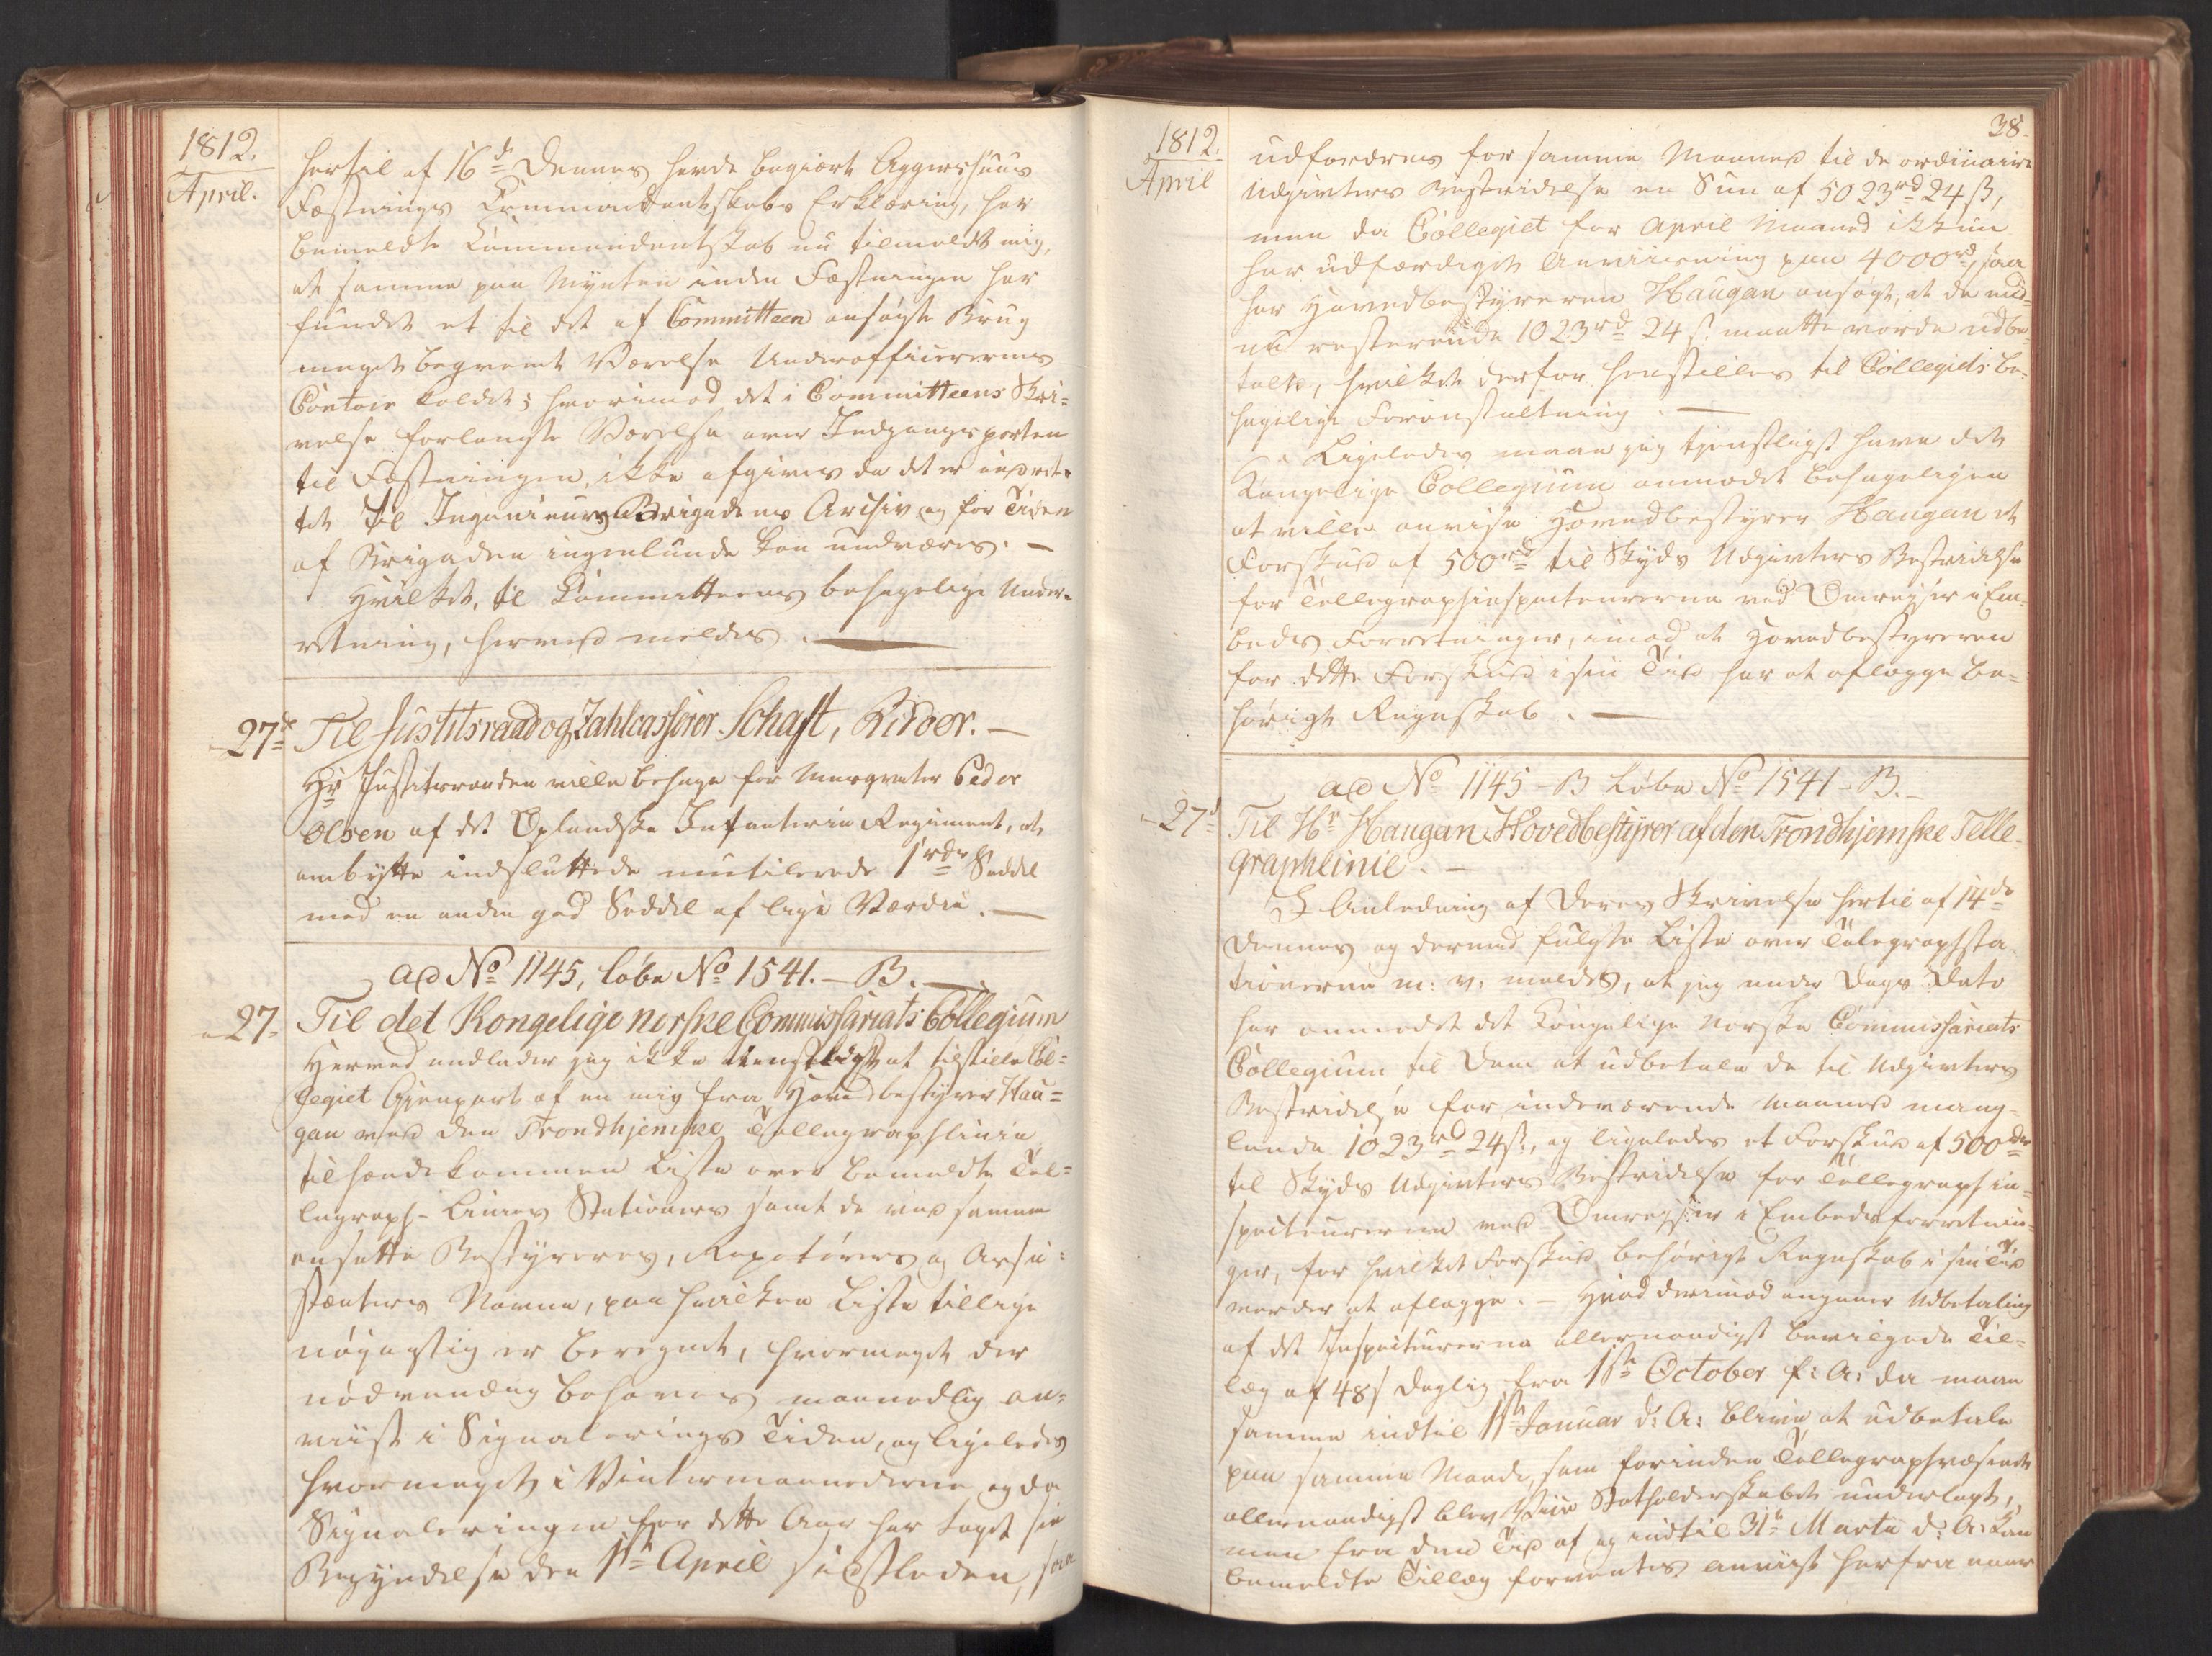 1812.
April.
hertil af 16de Dennes havde begiært Aggershuus
Fæstnings Commandantskabs Erklæring, har
bemeldte Commandentskab nu tilmeldt mig,
at samme paa Mynten inden Fæstningen har
fundet et til det af Committeen ansøgte Brug
meget beqvemt Værelse Underofficerernes
Contoir kaldet; hvorimod det i Committeens Skri-
velse forlangte Værelse over Indgangsporten
til Fæstningen, ikke afgives da det er indret-
tet til Ingenieurs Brigadens Archiv og for Tiden
af Brigaden ingenlunde kan undværes. —
Hvilket, til Committeens behagelige Under-
retning, herved meldes. —
27de Til Justitsraad og Zahlcasserer Schaft, Ridder. —
Hr Justitsraaden ville behage for Marqvetter Peder
Olsen af det Oplandske Infanterie Regiment, at
ombytte indsluttede mutilerede 1 rdr Seddel
med en anden god Seddel af lige Værdie. —
ad No 1145, Løbe No 1541. — B. —
27. Til det Kongelige norske Commissariats Collegium
Herved undlader jeg ikke tienstligst at tilstille Col-
legiet Gjenpart af en mig fra Hovedbestyrer Hau-
gan ved den Trondhjemske Tellegraphlinie
tilhændekommen Liste over bemeldte Tel-
legraph-Linies Stationer samt de ved samme
ansatte Bestyreres, Repetörers og Assi-
stenters Navne, paa hvilken Liste tillige
nøjagtig er beregnet, hvormeget der
nødvendig behøves maanedlig an-
viist i Signalerings Tiden, og ligeledes
hvormeget i Vintermaanederne og da
Signaleringen for dette Aar har taget sin
Begyndelse den 1ste April sidstleden, saa
38.
1812.
April
udfordres for samme Maaned til de ordinaire
Udgivters Bestridelse en Sum af 5023rd 24 ß,
men da Collegiet for April Maaned ikkun
har udfærdiget Anviisning paa 4000rd, saa
har Hovedbestyreren Haugan ansøgt, at de end-
nu resterende 1023rd 24 ß. maatte vorde udbe-
talte, hvilket derfor henstilles til Collegiets be-
hagelige Foranstaltning. —
Ligeledes maae jeg tjenstligst have det
Kongelige Collegium anmodet behageligen
at ville anvise Hovedbestyrer Haugan et
Forskud af 500rd til Skyds Udgivters Bestridelse
for Tellegraphinspecteurerne ved Omrejser i Em-
beds Forretninger, imod at Hovedbestyreren
for dette Forskud i sin Tid har at aflægge be-
hørigt Regnskab. —
ad No 1145 - B Løbe No 1541 - B. —
27d Til Hr Haugan Hovedbestyrer af den Trondhjemske Telle-
graphlinie. —
I Anledning af Deres Skrivelse hertil af 14de
Dennes og dermed fulgte Liste over Telegraphsta-
tionerne m: v: meldes, at jeg under Dags Dato
har anmodet det Kongelige norske Commissariats
Collegium til Dem at udbetale de til Udgivters
Bestridelse for indeværende Maaned mang-
lende 1023rd 24ß., og ligeledes et Forskud af 500rdr
til Skyds Udgivters Bestridelse for Tellegraphin-
specteurerne ved Omrejser i Embedsforretnin-
ger, for hvilket Forskud behørigt Regnskab i sin Tid
vorder at aflægge. — Hvad derimod angaaer Udbetaling
af det Inspecteurerne allernaadigst bevilgede Til-
læg af 48ß daglig fra 1ste October f: A: da maae
samme indtil 1ste Januar d: A: blive at udbetale
paa samme Maade, som forinden Tellegraphvæsenet
allernaadigst blev Vice Statholderskabet underlagt,
men fra den Tid af og indtil 31te Martii d: A: kan
bemeldte Tillæg forventes anviist herfra naar